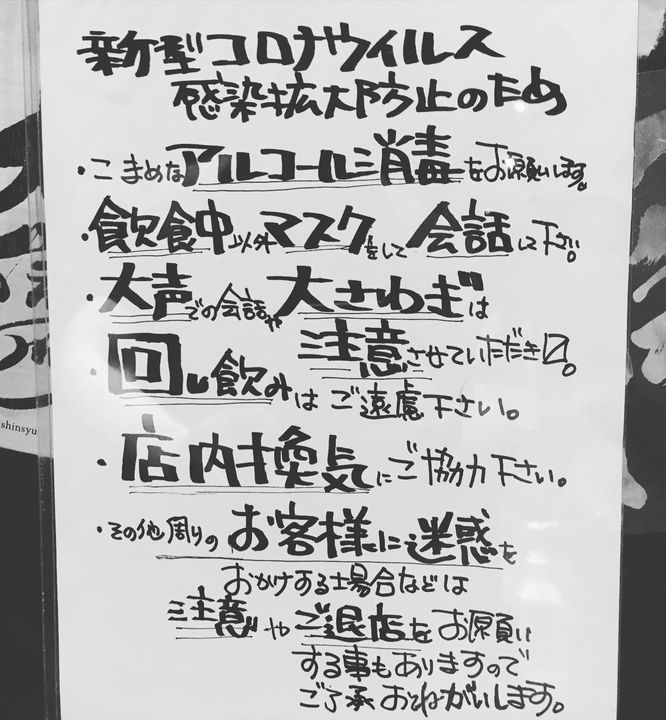 新型コロナウイルス
感染拡大防止のため
・こまめなアルコール消毒をお願いします。
・飲食中以外マスクをして会話して下さい。
・大声での会話や大さわぎは
注意させていただき〼。
・回し飲みはご遠慮下さい。
・店内換気にご協力下さい。
・その他周りのお客様に迷惑を
おかけする場合などは
注意やご退店をお願い
する事もありますので
ご了承おねがいします。
shinsyu